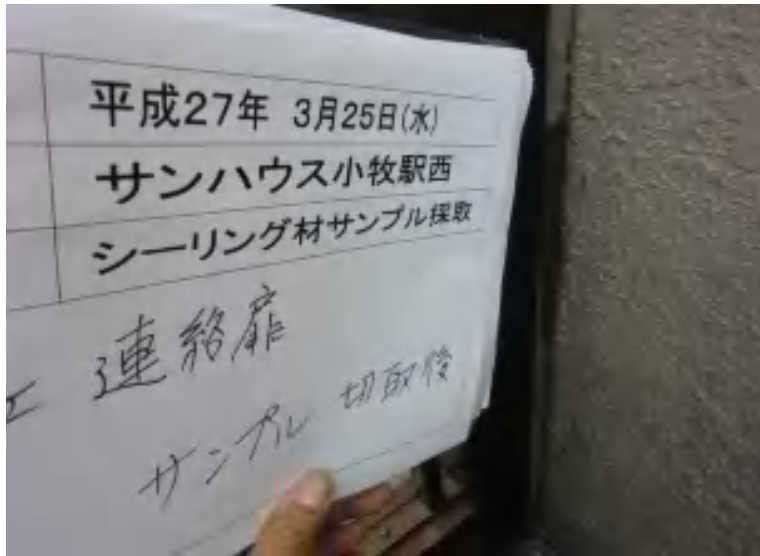 平成27年 3月25日(水)
サンハウス小牧駅西
シーリング材サンプル採取
連絡扉
サンプル 切取後